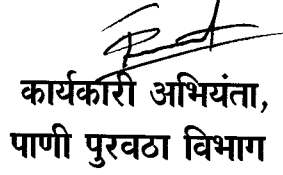 कार्यकारी अभियंता,
पाणी पुरवठा विभाग